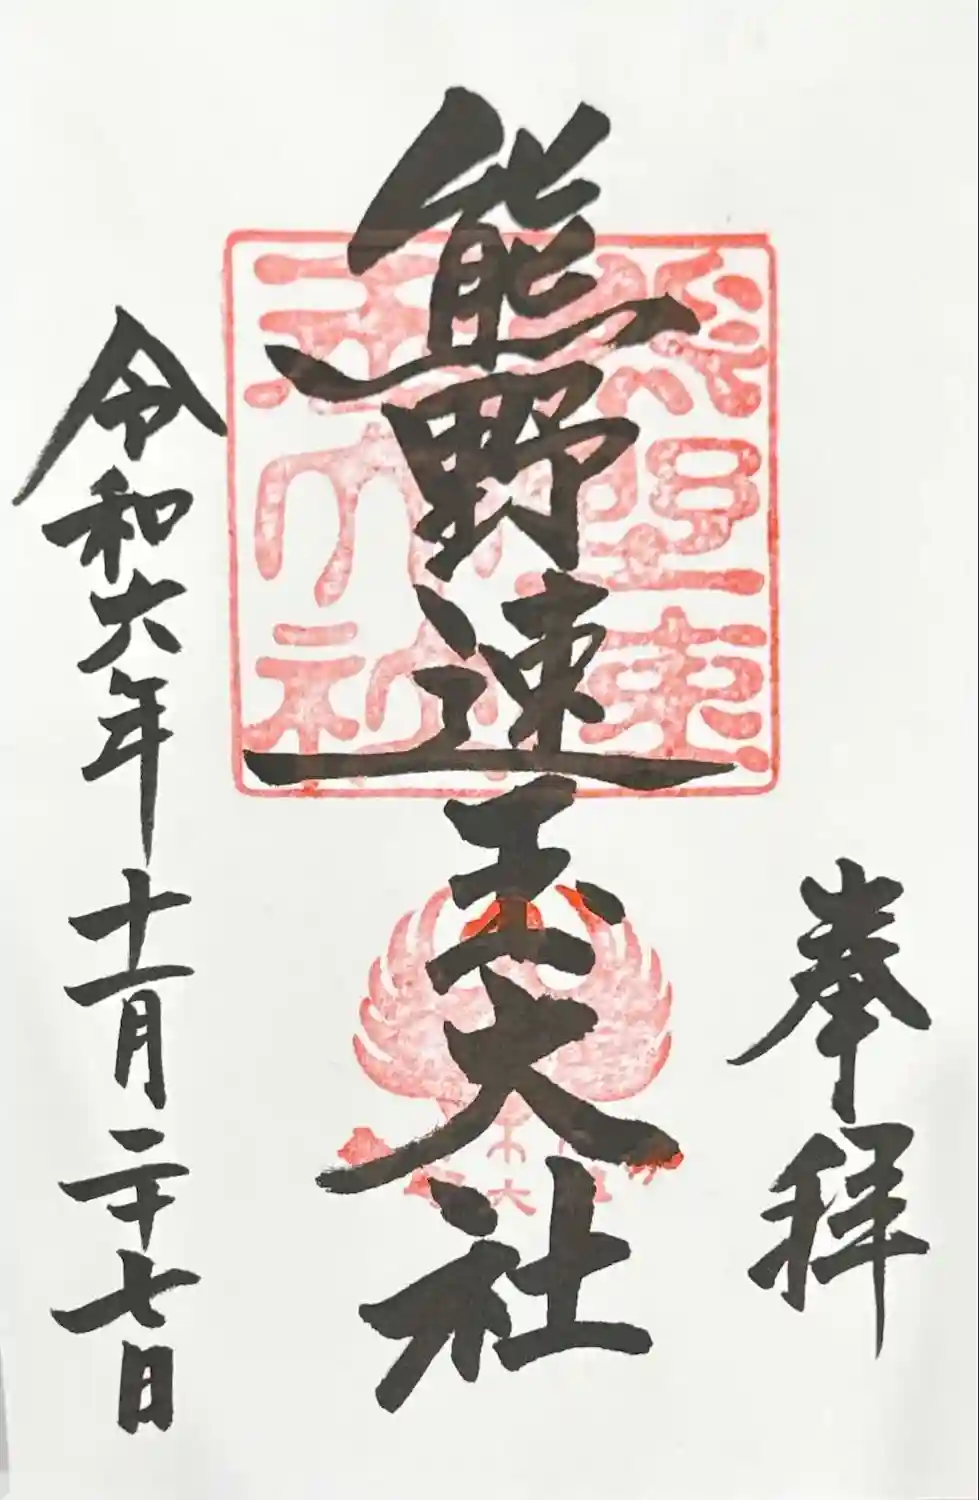 奉拝
熊野速玉大社
熊野速
玉大社
令和六年十一月二十七日